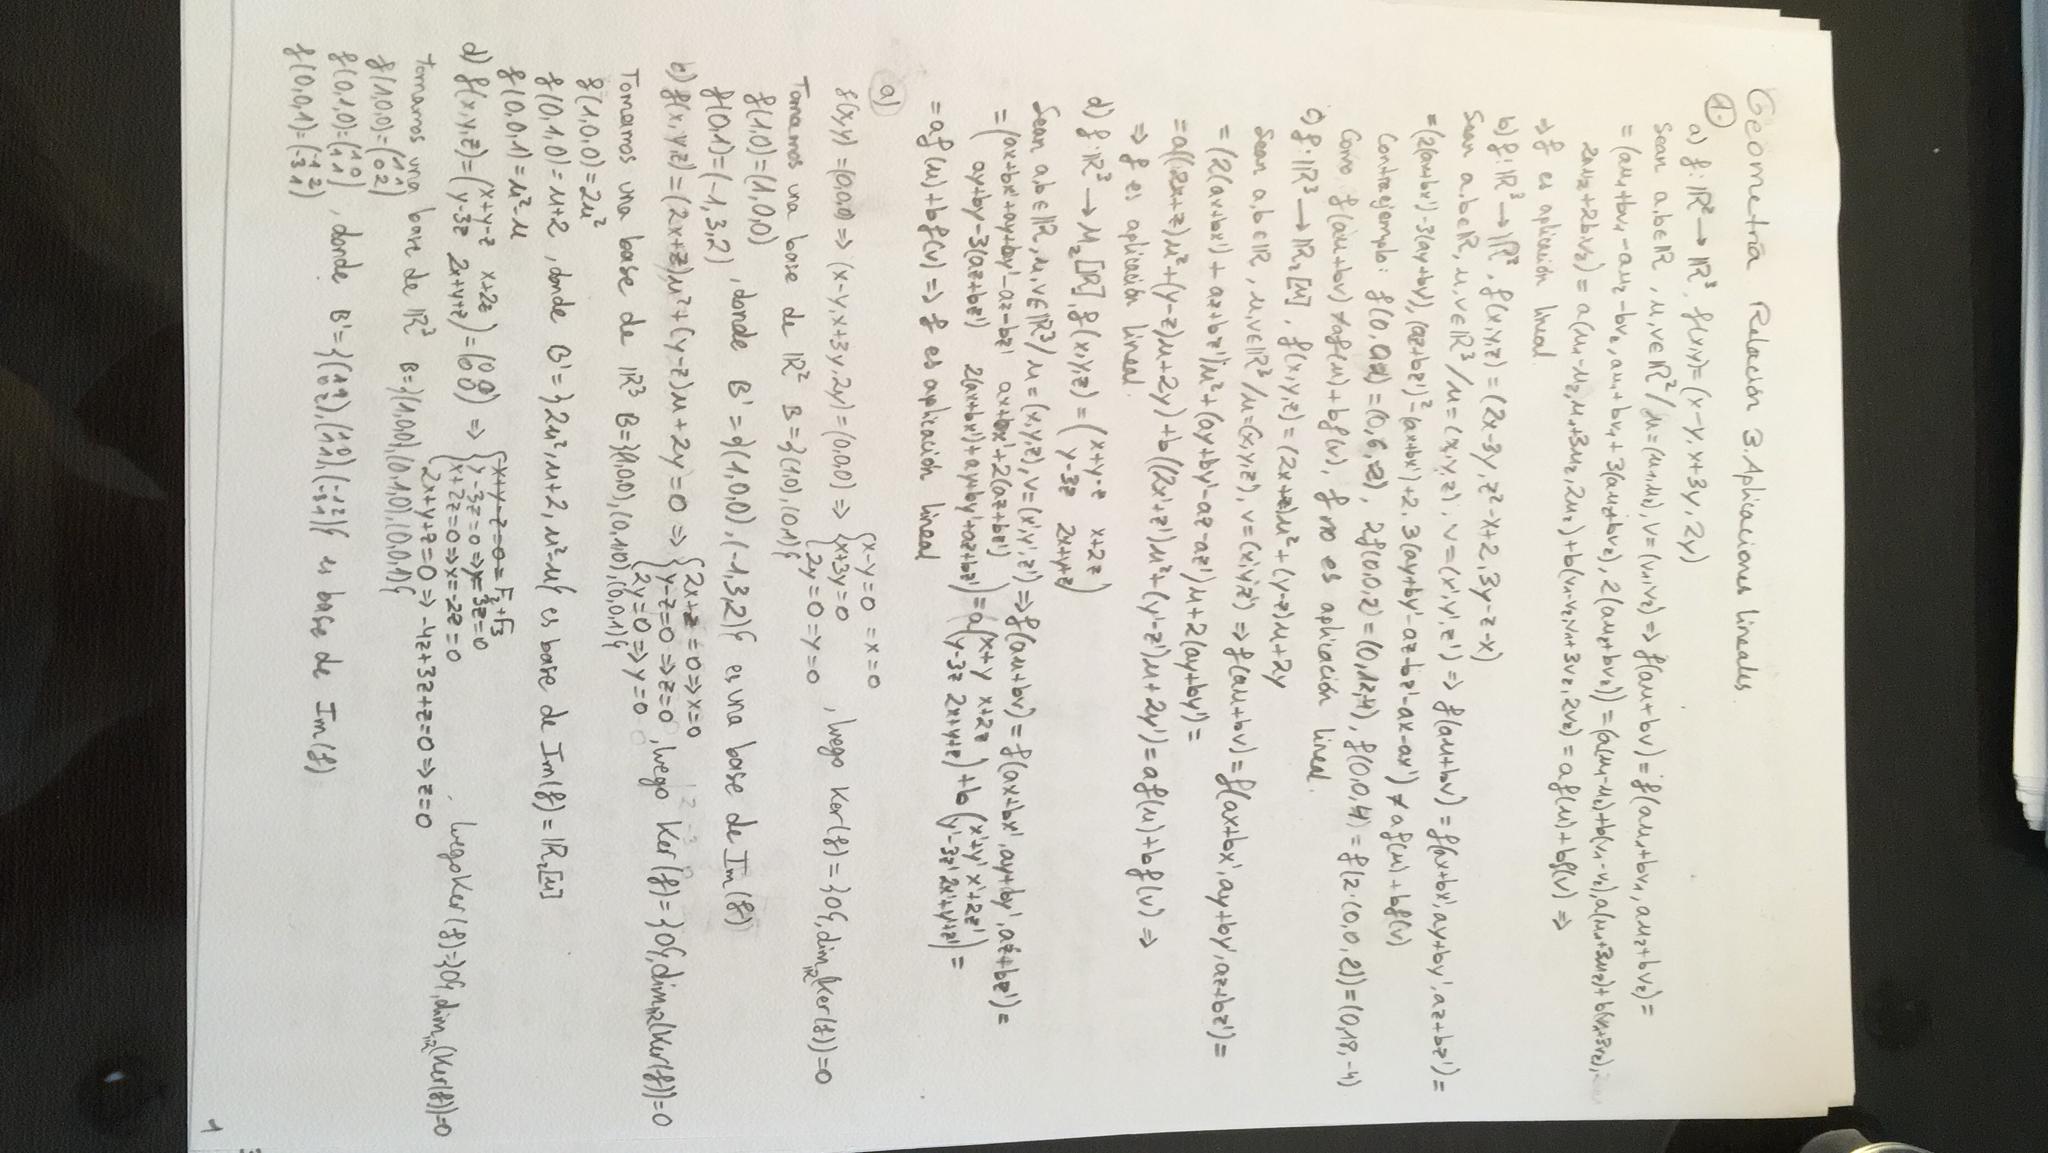 Geometría Relación 3. Aplicaciones lineales.
1.
a) f: ℝ² → ℝ³, f(x,y)=(x-y, x+3y, 2y)
Sean a,b∈ℝ, u,v∈ℝ²/u=(u₁,u₂), v=(v₁,v₂) ⇒ f(au+bv)=f(au₁+bv₁, au₂+bv₂)=
=(au₁+bv₁-au₂-bv₂, au₁+bv₁+3(au₂+bv₂), 2(au₂+bv₂))=(a(u₁-u₂)+b(v₁-v₂), a(u₁+3u₂)+b(v₁+3v₂),
2au₂+2bv₂)=a(u₁-u₂, u₁+3u₂, 2u₂)+b(v₁-v₂, v₁+3v₂, 2v₂)=af(u)+bf(v) ⇒
⇒ f es aplicación lineal.
b) f: ℝ³ → ℝ², f(x,y,z)=(2x-3y, z²-x+2, 3y-z-x)
Sean a,b∈ℝ, u,v∈ℝ³/u=(x,y,z), v=(x',y',z') ⇒ f(au+bv)=f(ax+bx', ay+by', az+bz')=
=(2(ax+bx')-3(ay+by'), (az+bz')²-(ax+bx')+2, 3(ay+by'-az-bz'-ax-ax') ≠ af(u)+bf(v)
Contraejemplo: f(0,0,2)=(0,6,-2), 2f(0,0,2)=(0,12,4), f(0,0,4)=f(2·(0,0,2))=(0,18,-4)
Como f(au+bv)≠af(u)+bf(v), f no es aplicación lineal.
c) f: ℝ³ → ℝ₂[u], f(x,y,z)=(2x+z)u²+(y-z)u+2y
Sean a,b∈ℝ, u,v∈ℝ³/u=(x,y,z), v=(x',y',z') ⇒ f(au+bv)=f(ax+bx', ay+by', az+bz')=
=(2(ax+bx')+az+bz')u²+(ay+by'-az-az')u+2(ay+by')=
=a((2x+z)u²+(y-z)u+2y)+b((2x'+z')u²+(y'-z')u+2y')=af(u)+bf(v) ⇒
⇒ f es aplicación lineal.
d) f: ℝ³ → M₂[ℝ], f(x,y,z)=(x+y-z x+2z
y-3z 2x+y+z)
Sean a,b∈ℝ, u,v∈ℝ³/u=(x,y,z), v=(x',y',z') ⇒ f(au+bv)=f(ax+bx', ay+by', az+bz')=
=(ax+bx'+ay+by'-az-bz' ax+bx'+2(az+bz')
ay+by-3(az+bz') 2(ax+bx')+ay+by'+az+bz')=a(x+y x+2z
y-3z 2x+y+z)+b(x'+y' x'+2z'
y'-3z' 2x'+y'+z')=
=af(u)+bf(v) ⇒ f es aplicación lineal
a)
f(x,y)=(0,0,0) ⇒ (x-y, x+3y, 2y)=(0,0,0) ⇒ {x-y=0 =x=0
x+3y=0
2y=0=y=0, luego Ker(f)={0}, dim_ℝ(Ker(f))=0
Tomamos una base de ℝ² B={(1,0),(0,1)}
f(1,0)=(1,0,0)
f(0,1)=(-1,3,2), donde B'={(1,0,0),(-1,3,2)} es una base de Im(f)
c) f(x,y,z)=(2x+z)u²+(y-z)u+2y=0 ⇒ {2x+z=0⇒x=0
y-z=0 ⇒z=0
2y=0⇒y=0, luego Ker(f)={0}, dim_ℝ(Ker(f))=0
Tomamos una base de ℝ³ B={(1,0,0),(0,1,0),(0,0,1)}
f(1,0,0)=2u²
f(0,1,0)=u+2, donde B'={2u², u+2, u²-u} es base de Im(f)=ℝ₂[u]
f(0,0,1)=u²-u
d) f(x,y,z)=(x+y-z x+2z
y-3z 2x+y+z)=(0 0
0 0) ⇒ {x+y-z=0 = F₂+F₃
y-3z=0⇒y=3z=0
x+2z=0⇒x=-2z=0
2x+y+z=0 ⇒ -4z+3z+z=0 ⇒ z=0
luego Ker(f)={0}, dim_ℝ(Ker(f))=0
Tomamos una base de ℝ³ B={(1,0,0),(0,1,0),(0,0,1)}
f(1,0,0)=(1 1
0 2)
f(0,1,0)=(1 0
1 1), donde B'={(1 1
0 2),(1 0
1 1),(-1 2
-3 1)} es base de Im(f)
f(0,0,1)=(-1 2
-3 1)
1